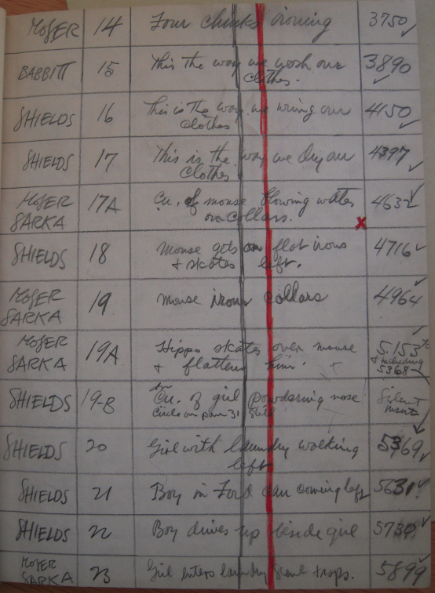 MOSER 14 Four chicks ironing 3750
BABBITT 15 This the way we wash our 3890
clothes.
SHIELDS 16 This is the way we wring our 4150
clothes
SHIELDS 17 This is the way we dry our 4397
clothes
MOSER 17A Cu. of mouse blowing water 4632
SARKA on collars.
x
SHIELDS 18 Mouse gets on flat irons 4716
+ skates left.
MOSER 19 Mouse irons collars 4964
SARKA
MOSER 19A Hippo skates over mouse 5.153
SARKA + flattens him. + including
5368
SHIELDS 19-B Cu. of girl powdering nose Silent
SHIELDS 20 Girl with laundry walking 5369
left
SHIELDS 21 Boy in Ford car coming left 5631
SHIELDS 22 Boy drives up beside girl 5739
MOSER 23 Girl enters laundry 5899
SARKA